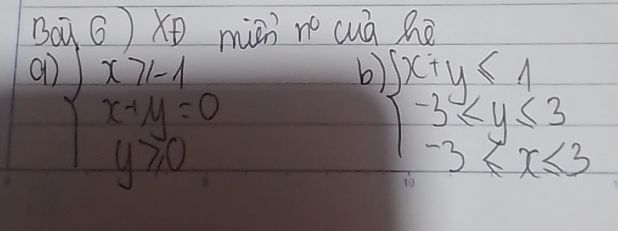 Bài 6) XĐ miền n⁰ của hệ
a) { x ≥ -1
x + y = 0
y ≥ 0
b) { x + y ≤ 1
-3 ≤ y ≤ 3
-3 ≤ x ≤ 3
10